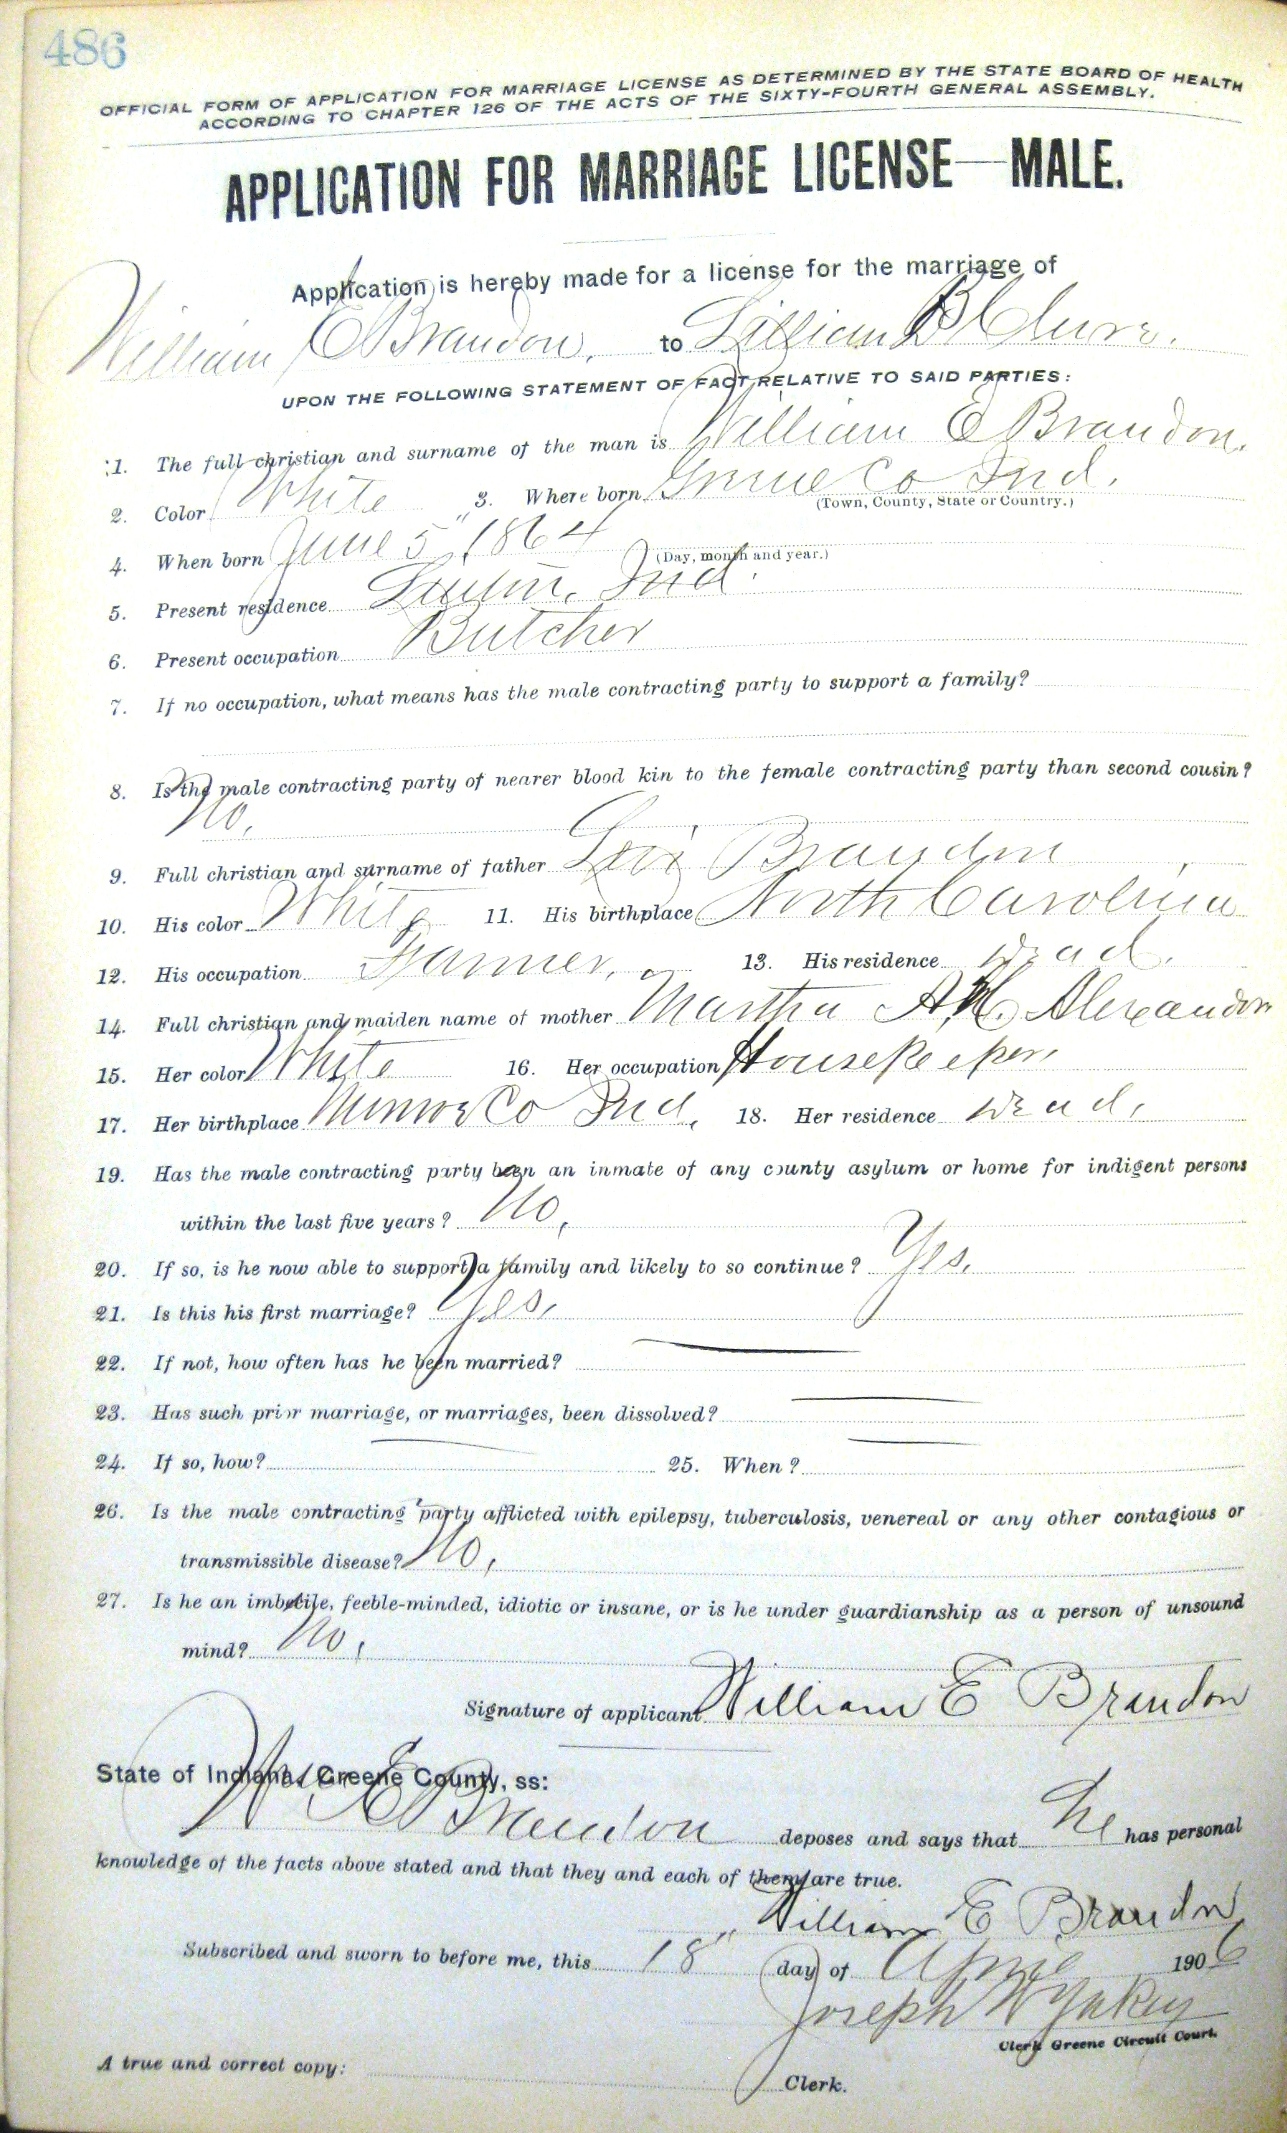 486
OFFICIAL FORM OF APPLICATION FOR MARRIAGE LICENSE AS DETERMINED BY THE STATE BOARD OF HEALTH
ACCORDING TO CHAPTER 126 OF THE ACTS OF THE SIXTY-FOURTH GENERAL ASSEMBLY.
APPLICATION FOR MARRIAGE LICENSE—MALE.
Application is hereby made for a license for the marriage of
William E Brandon, to Lillian B Clure.
UPON THE FOLLOWING STATEMENT OF FACT RELATIVE TO SAID PARTIES:
1. The full christian and surname of the man is William E Brandon.
2. Color White 3. Where born Greene Co Ind.
(Town, County, State or Country.)
4. When born June 5" 1864
(Day, month and year.)
5. Present residence Linton, Ind.
6. Present occupation Butcher
7. If no occupation, what means has the male contracting party to support a family?
8. Is the male contracting party of nearer blood kin to the female contracting party than second cousin?
No.
9. Full christian and surname of father Levi Brandon
10. His color White 11. His birthplace North Carolina
12. His occupation Farmer, 13. His residence Dead.
14. Full christian and maiden name of mother Martha A. Alexander
15. Her color White 16. Her occupation Housekeeper,
17. Her birthplace Monroe Co Ind, 18. Her residence Dead,
19. Has the male contracting party been an inmate of any county asylum or home for indigent persons
within the last five years? No,
20. If so, is he now able to support a family and likely to so continue? Yes.
21. Is this his first marriage? Yes,
22. If not, how often has he been married?
23. Has such prior marriage, or marriages, been dissolved?
24. If so, how? 25. When?
26. Is the male contracting party afflicted with epilepsy, tuberculosis, venereal or any other contagious or
transmissible disease? No,
27. Is he an imbecile, feeble-minded, idiotic or insane, or is he under guardianship as a person of unsound
mind? No,
Signature of applicant William E Brandon
State of Indiana, Greene County, ss:
Wm E Brandon deposes and says that he has personal
knowledge of the facts above stated and that they and each of them are true.
William E Brandon
Subscribed and sworn to before me, this 18" day of April 1906
Joseph W Yakey
Clerk Greene Circuit Court.
A true and correct copy: Clerk.